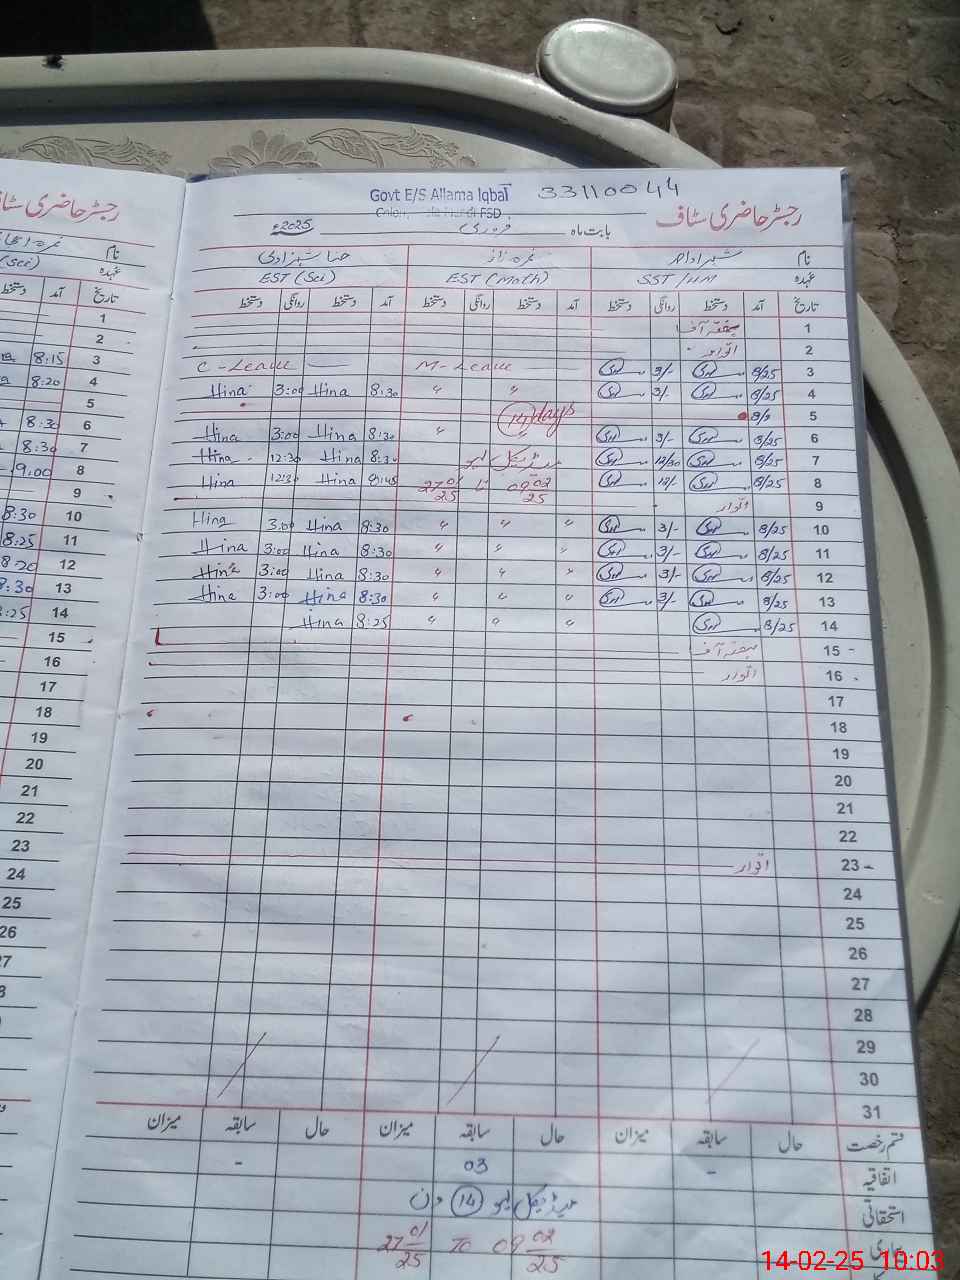 Govt E/S Allama Iqbal 33110044
رجسٹر حاضری سٹاف
2025ء فروری بابت ماہ
نام
عہدہ SST/HM EST (Math) EST (Sci)
تاریخ آمد دستخط روانگی دستخط آمد دستخط روانگی دستخط آمد دستخط روانگی دستخط
1 ہفتہ آف
2 اتوار
3 8/25 3/- M-Leave C-Leave
4 8/25 3/- " " 8:30 Hina 3:00 Hina
5 14 days
6 8/25 3/- " 8:30 Hina 3:00 Hina
7 8/25 12/30 میڈیکل لیو 8:30 Hina 12:30 Hina
8 8/25 12/- 27 01/25 تا 09 02/25 8:45 Hina 12:30 Hina
9 اتوار
10 8/25 3/- " " " 8:30 Hina 3:00 Hina
11 8/25 3/- " " " 8:30 Hina 3:00 Hina
12 8/25 3/- " " " 8:30 Hina 3:00 Hina
13 8/25 3/- " " " 8:30 Hina 3:00 Hina
14 8/25 " " " 8:25 Hina
15 ہفتہ آف
16 اتوار
17
18
19
20
21
22
23 اتوار
24
25
26
27
28
29
30
31
قسم رخصت حال سابقہ میزان حال سابقہ میزان حال سابقہ میزان
اتفاقیہ - 03 -
استحقاقی میڈیکل لیو 14 دن
بیماری 27 01/25 To 09 02/25
رجسٹر حاضری سٹاف
نام
عہدہ (Sci)
تاریخ آمد دستخط
1
2
3 8:15
4 8:20
5
6 8:30
7 8:30
8 9:00
9
10 8:30
11 8:25
12 8:20
13 8:30
14 8:25
15
16
17
18
19
20
21
22
23
24
25
26
14-02-25 10:03